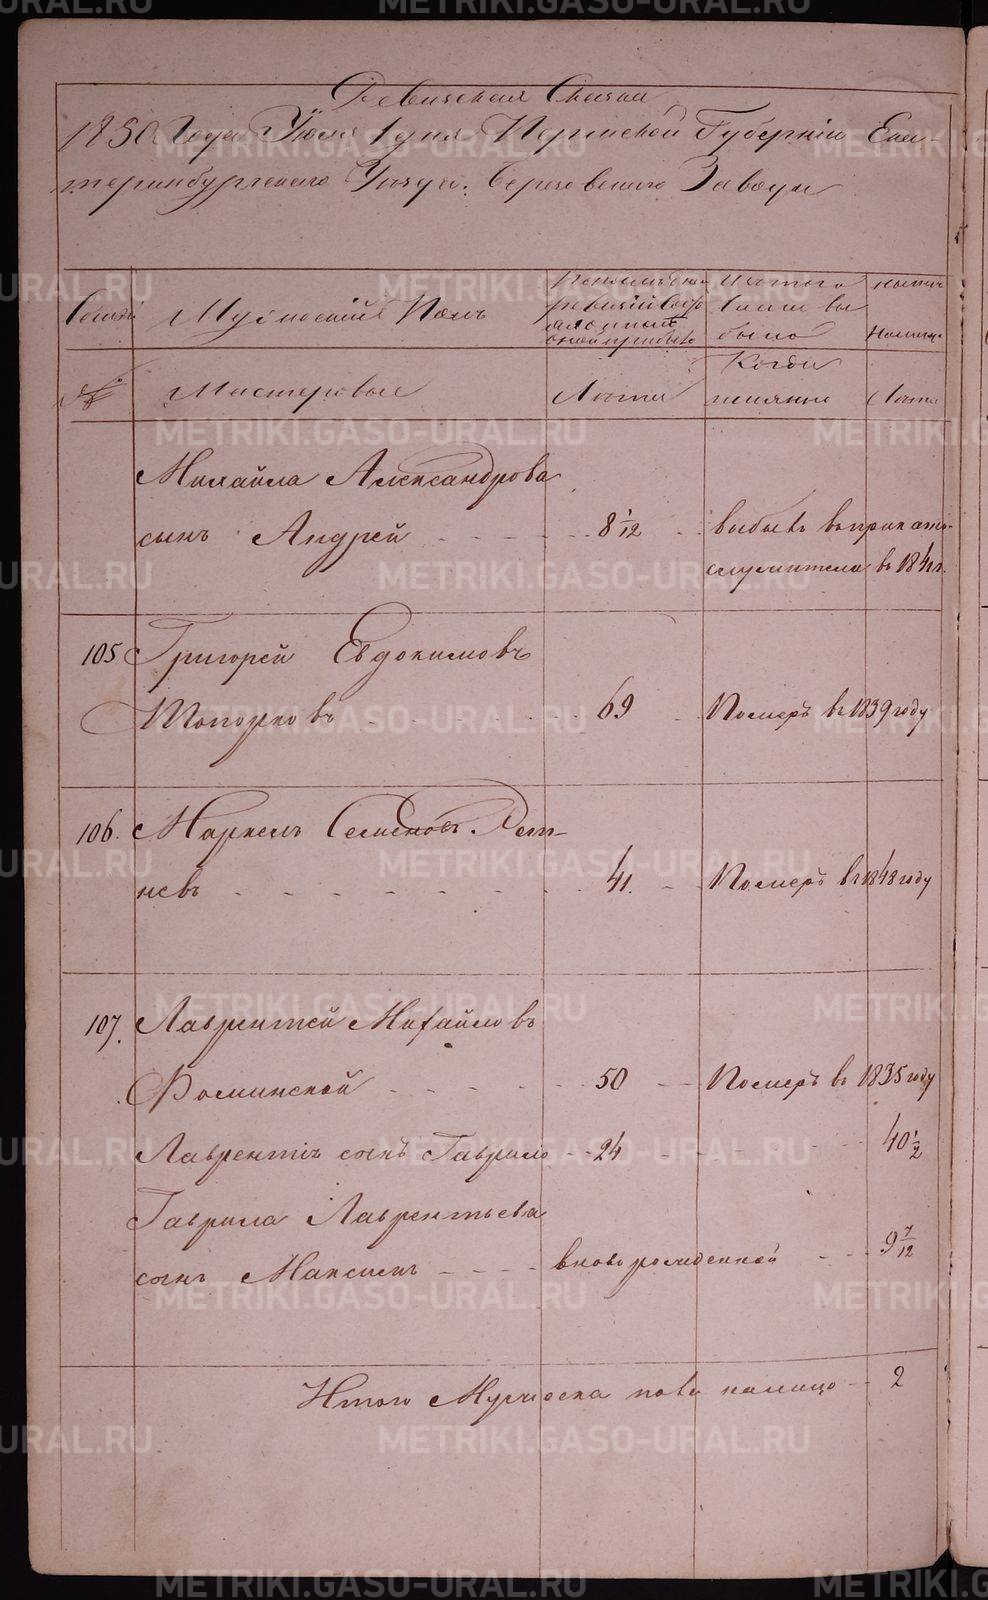 Ревизская Сказка
1850 Года Июля 1 дня Пермской Губернии Ека-
теринбургского Уезда. Березовского Завода
Семьи
Мужеский Полъ
По последней
ревизии
и после
оной прибыло
Изъ того
числа вы
было
ныне
на лицо
№
Мастеровые
Лета
Когда
имянно
Лета
Михайла Александрова
сынъ Андрей - - - - 8 1/12 - выбылъ въ приказно-
служители въ 184
105 Григорей Евдокимовъ
Топорковъ - - - - 69 - Померъ въ 1839 году
106. Маркелъ Семеновъ Рет-
невъ - - - - 41. - Померъ въ 1848 году
107. Лаврентей Михайловъ
Фоминской - - - - 50 - Померъ въ 1835 году
Лаврентія сынъ Гаврило - - 24 - - - - 40 1/2
Гаврила Лаврентьева
сынъ Максимъ - - - - вновь рожденной - - 9 7/12
Итого Мужеска пола на лицо - - 2
METRIKI.GASO-URAL.RU